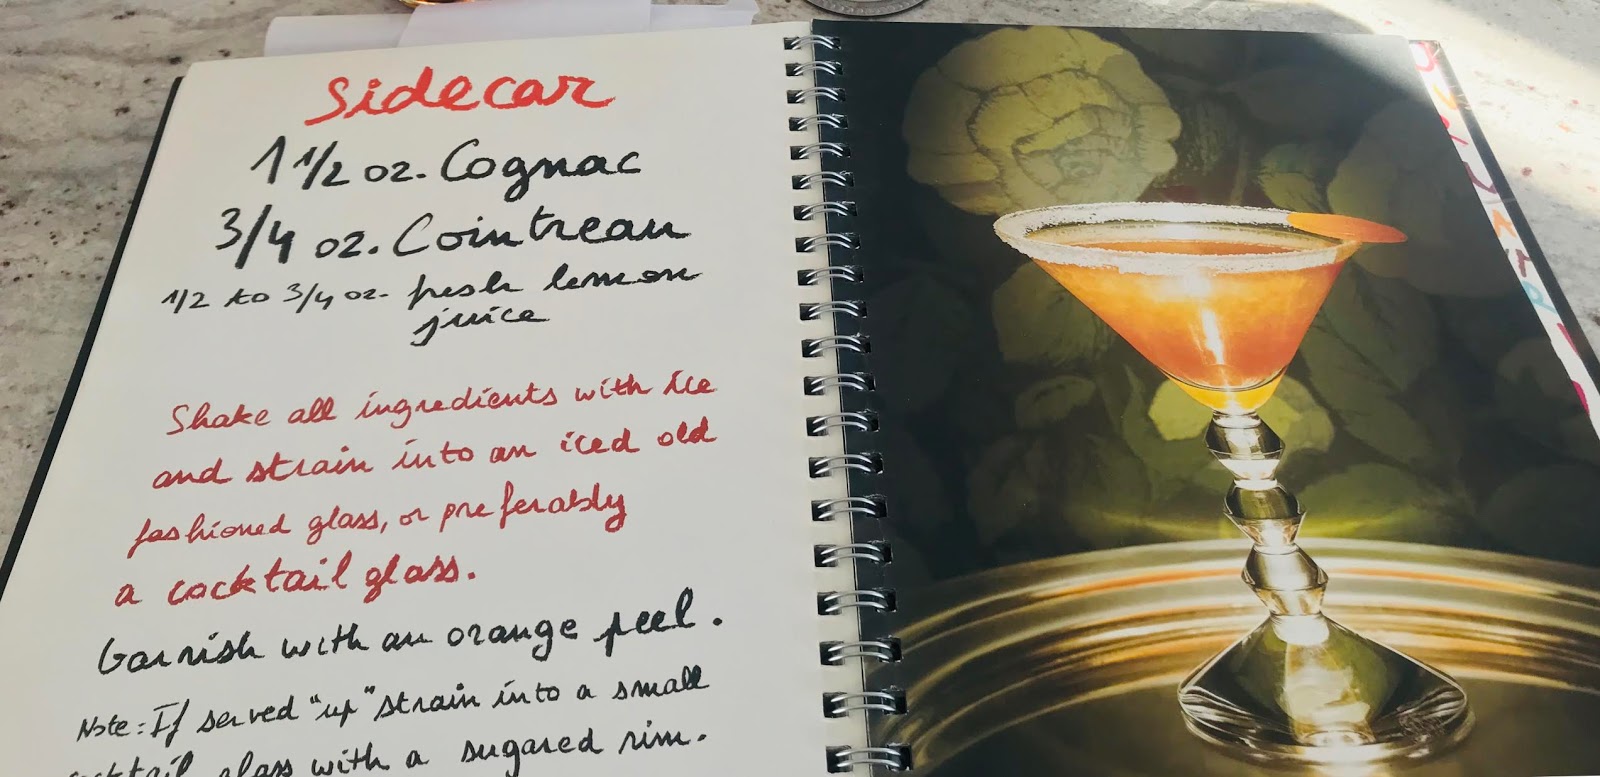 Sidecar
1 1/2 oz. Cognac
3/4 oz. Cointreau
1/2 to 3/4 oz. fresh lemon
juice
Shake all ingredients with ice
and strain into an iced old
fashioned glass, or preferably
a cocktail glass.
Garnish with an orange peel.
Note: If served "up" strain into a small
cocktail glass with a sugared rim.